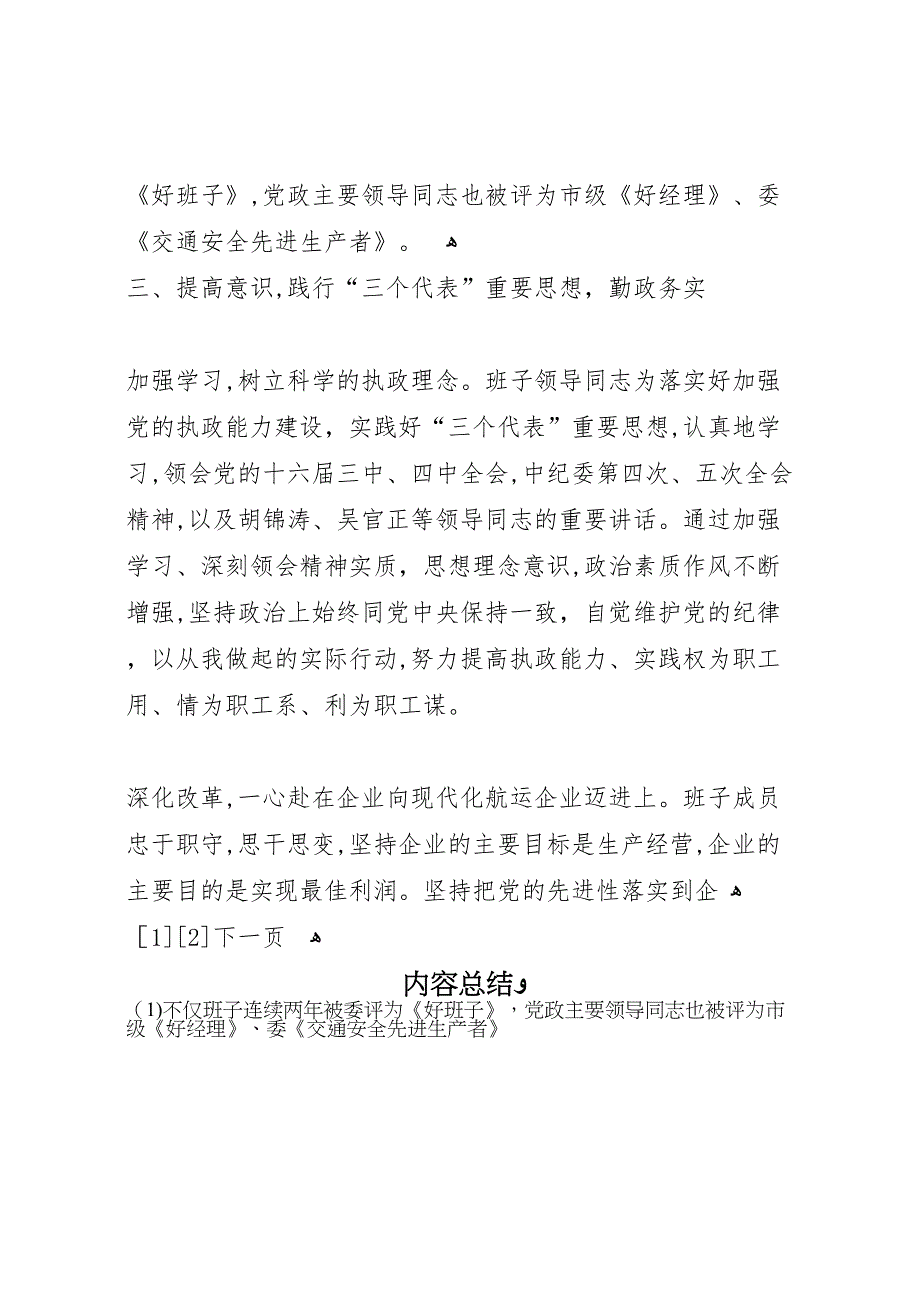 《好班子》,党政主要领导同志也被评为市级《好经理》、委
《交通安全先进生产者》。 ﻫ
三、提高意识,践行“三个代表”重要思想，勤政务实
加强学习,树立科学的执政理念。班子领导同志为落实好加强
党的执政能力建设，实践好“三个代表”重要思想,认真地学
习,领会党的十六届三中、四中全会,中纪委第四次、五次全会
精神,以及胡锦涛、吴官正等领导同志的重要讲话。通过加强
学习、深刻领会精神实质，思想理念意识,政治素质作风不断
增强,坚持政治上始终同党中央保持一致，自觉维护党的纪律
，以从我做起的实际行动,努力提高执政能力、实践权为职工
用、情为职工系、利为职工谋。
深化改革,一心赴在企业向现代化航运企业迈进上。班子成员
忠于职守,思干思变,坚持企业的主要目标是生产经营,企业的
主要目的是实现最佳利润。坚持把党的先进性落实到企 ﻫ
[1][2]下一页 ﻫ
内容总结ﻭ
（1)不仅班子连续两年被委评为《好班子》，党政主要领导同志也被评为市
级《好经理》、委《交通安全先进生产者》